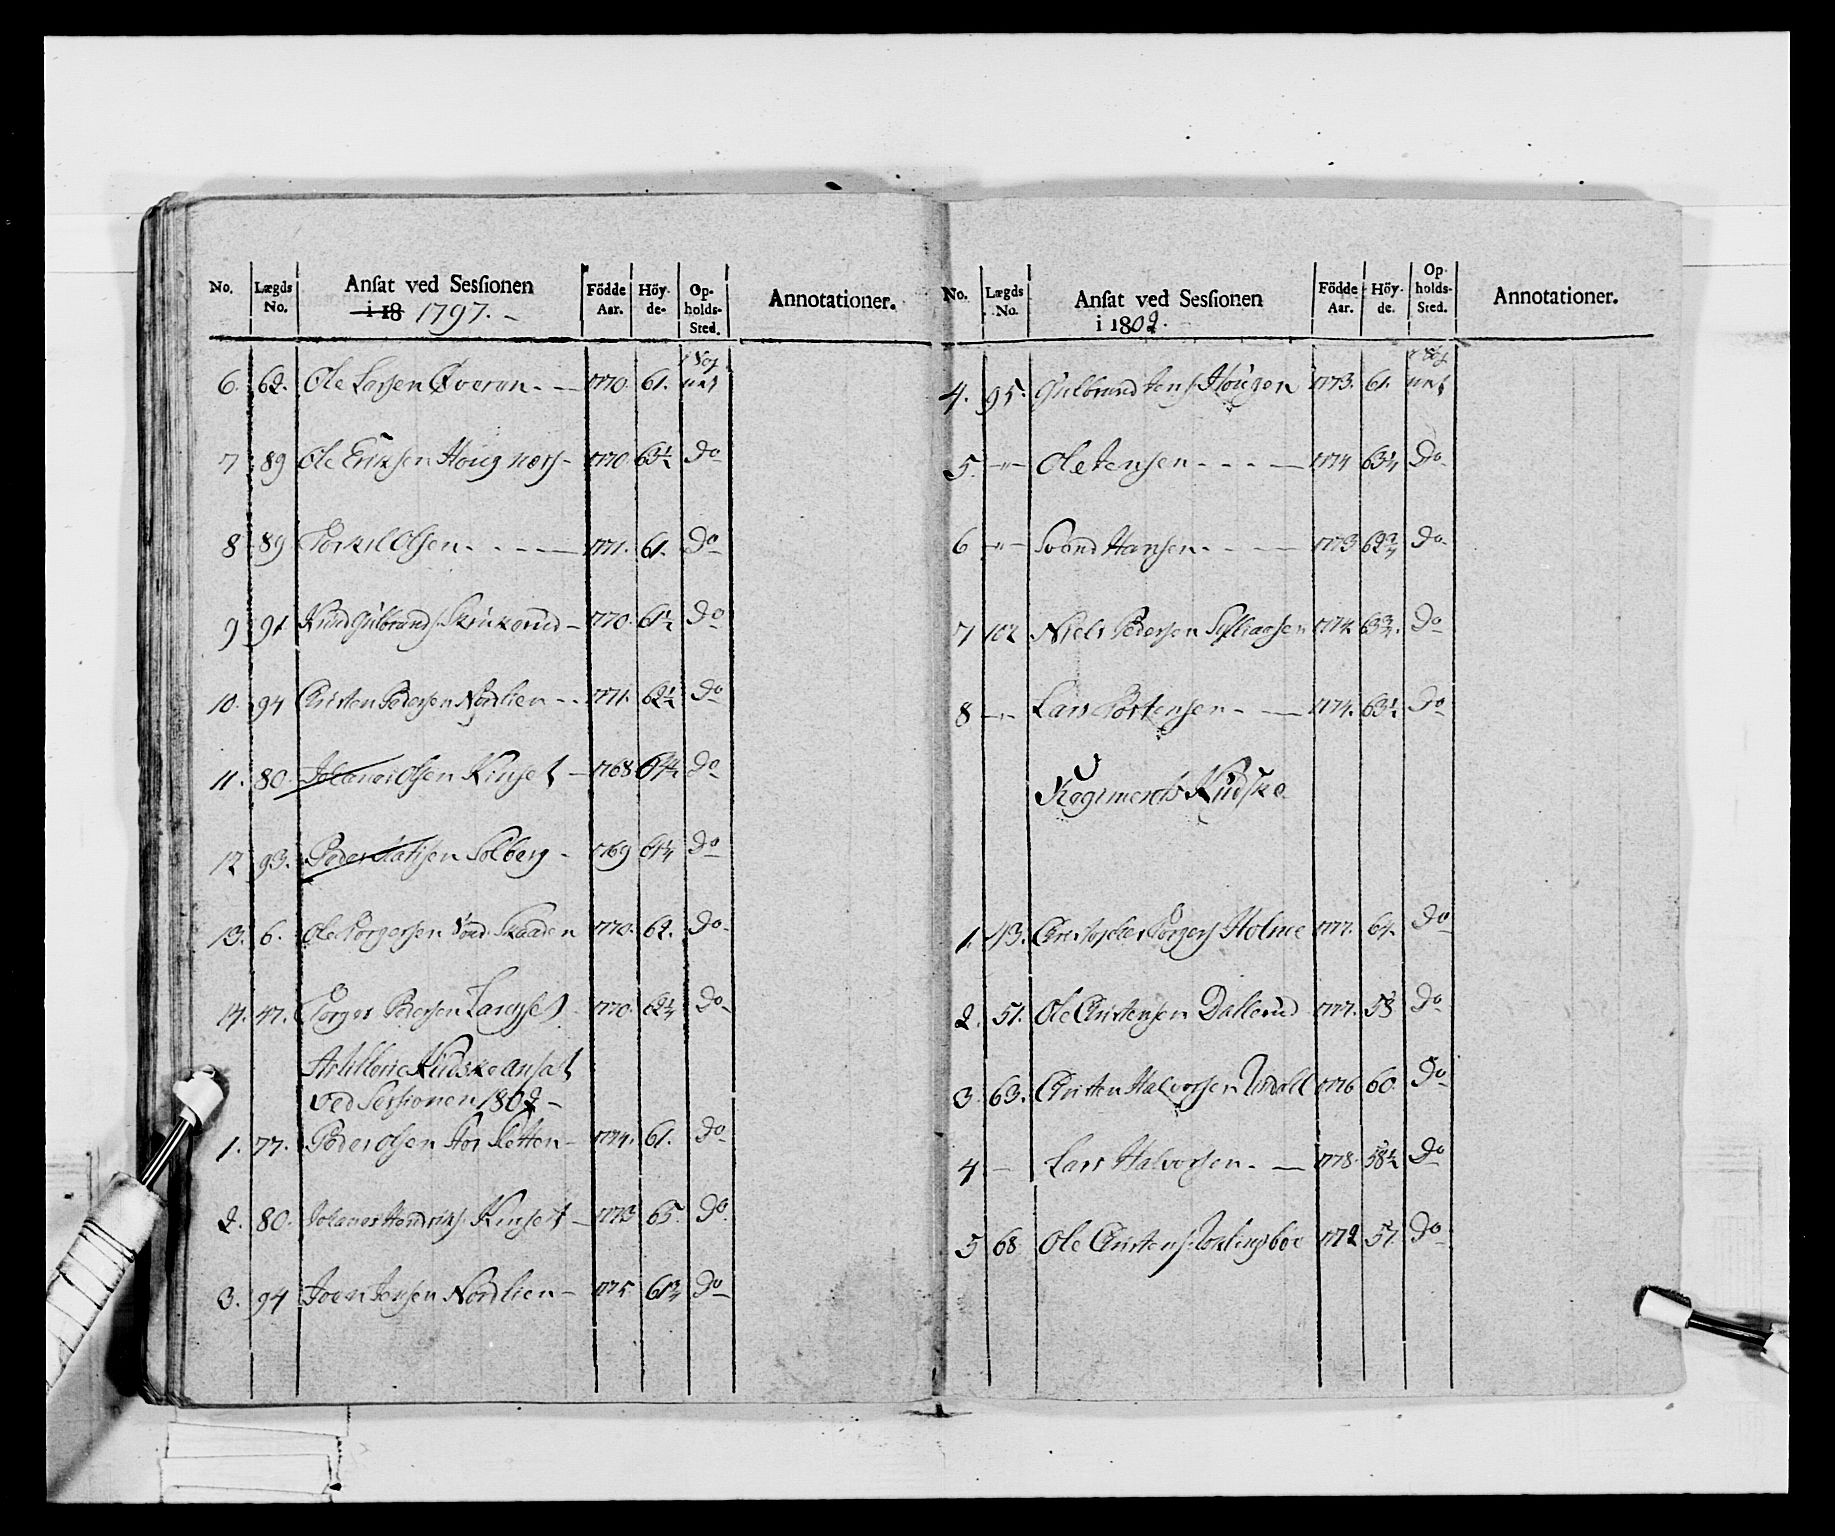 No. Lægds No. Ansat ved Sessionen i 18 1797. Födde Aar. Höy- de- Op- holds- Sted. Annotationer.
6. 62. Ole Larsen Øveren 1770. 61.
7 89 Ole Eriksen Houg 1770. 63½ Do
8 89 Torkel Olsen 1771. 61. Do
9 91 Knud Gulbrands. Skrukerud 1770. 61½ Do
10. 94 Christen Pedersen Nordlien 1771. 62½ Do
11. 80. Johanes Olsen Kinset 1768 Do
12 93. Peder Solberg 1769 Do
13. 6. Ole Torgersen Skaaden 1770. 62. Do
14. 47. Torger Pedersen Langset 1770. 62¼ Do
Artillerie Kudske ansat
ved Sessionen 1802
1. 77. Peder Olsen Stor Sletten 1774. 61. Do
2. 80. Johanes Hendriks. Kinset 1773 65. Do
3. 94 Joen Jensen Nordlien 1775 61¾ Do
No. Lægds No. Ansat ved Sessionen i 1802. Födde Aar. Höy- de. Op- holds- Sted. Annotationer.
4. 95. Gulbrand Jens. Hougen 1773. 61.
5. -"- Ole Jensen 1774 63¼ Do
6 -"- Svend Hansen 1773 Do
7 102 Niels Pedersen 1774 63¾. Do
8 -"- Lars Tostensen 1774. 63½ Do
Regiments Kudske
1. 43. Christopher Torgers. Holme 1777. 64. Do
2. 51. Ole Christensen Dallerud 1777. 58 Do
3. 63. Christen Halvorsen 1776 60. Do
4 — Lars Halvorsen 1778. 58½ Do
5 68 Ole Christens. 1772 57 Do